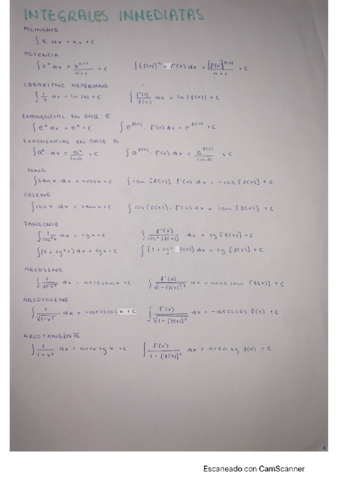 INTEGRALES INMEDIATAS
∫ k dx = kx + C
POTENCIA
∫ xⁿ dx = xⁿ⁺¹/(n+1) + C    ∫ [f(x)]ⁿ · f'(x) dx = [f(x)]ⁿ⁺¹/(n+1) + C
LOGARITMO NEPERIANO
∫ 1/x dx = ln |x| + C    ∫ f'(x)/f(x) dx = ln |f(x)| + C
EXPONENCIAL EN BASE e
∫ eˣ dx = eˣ + C    ∫ e^f(x) · f'(x) dx = e^f(x) + C
EXPONENCIAL EN BASE a
∫ aˣ dx = aˣ/ln a + C    ∫ a^f(x) · f'(x) dx = a^f(x)/ln a + C
SENO
∫ sen x dx = -cos x + C    ∫ sen [f(x)] · f'(x) dx = -cos [f(x)] + C
COSENO
∫ cos x dx = sen x + C    ∫ cos [f(x)] · f'(x) dx = sen [f(x)] + C
TANGENTE
∫ 1/cos² x dx = tg x + C    ∫ f'(x)/cos² [f(x)] dx = tg [f(x)] + C
∫ (1 + tg² x) dx = tg x + C    dx = tg [f(x)] + C
ARCOSENO
dx = arcsen x + C    ∫ f'(x)/√(1-[f(x)]²) dx = arcsen [f(x)] + C
ARCOCOSENO
dx = -arccos x + C    dx = -arccos f(x) + C
ARCOTANGENTE
∫ 1/(1+x²) dx = arc tg x + C    dx = arc tg f(x) + C
Escaneado con CamScanner